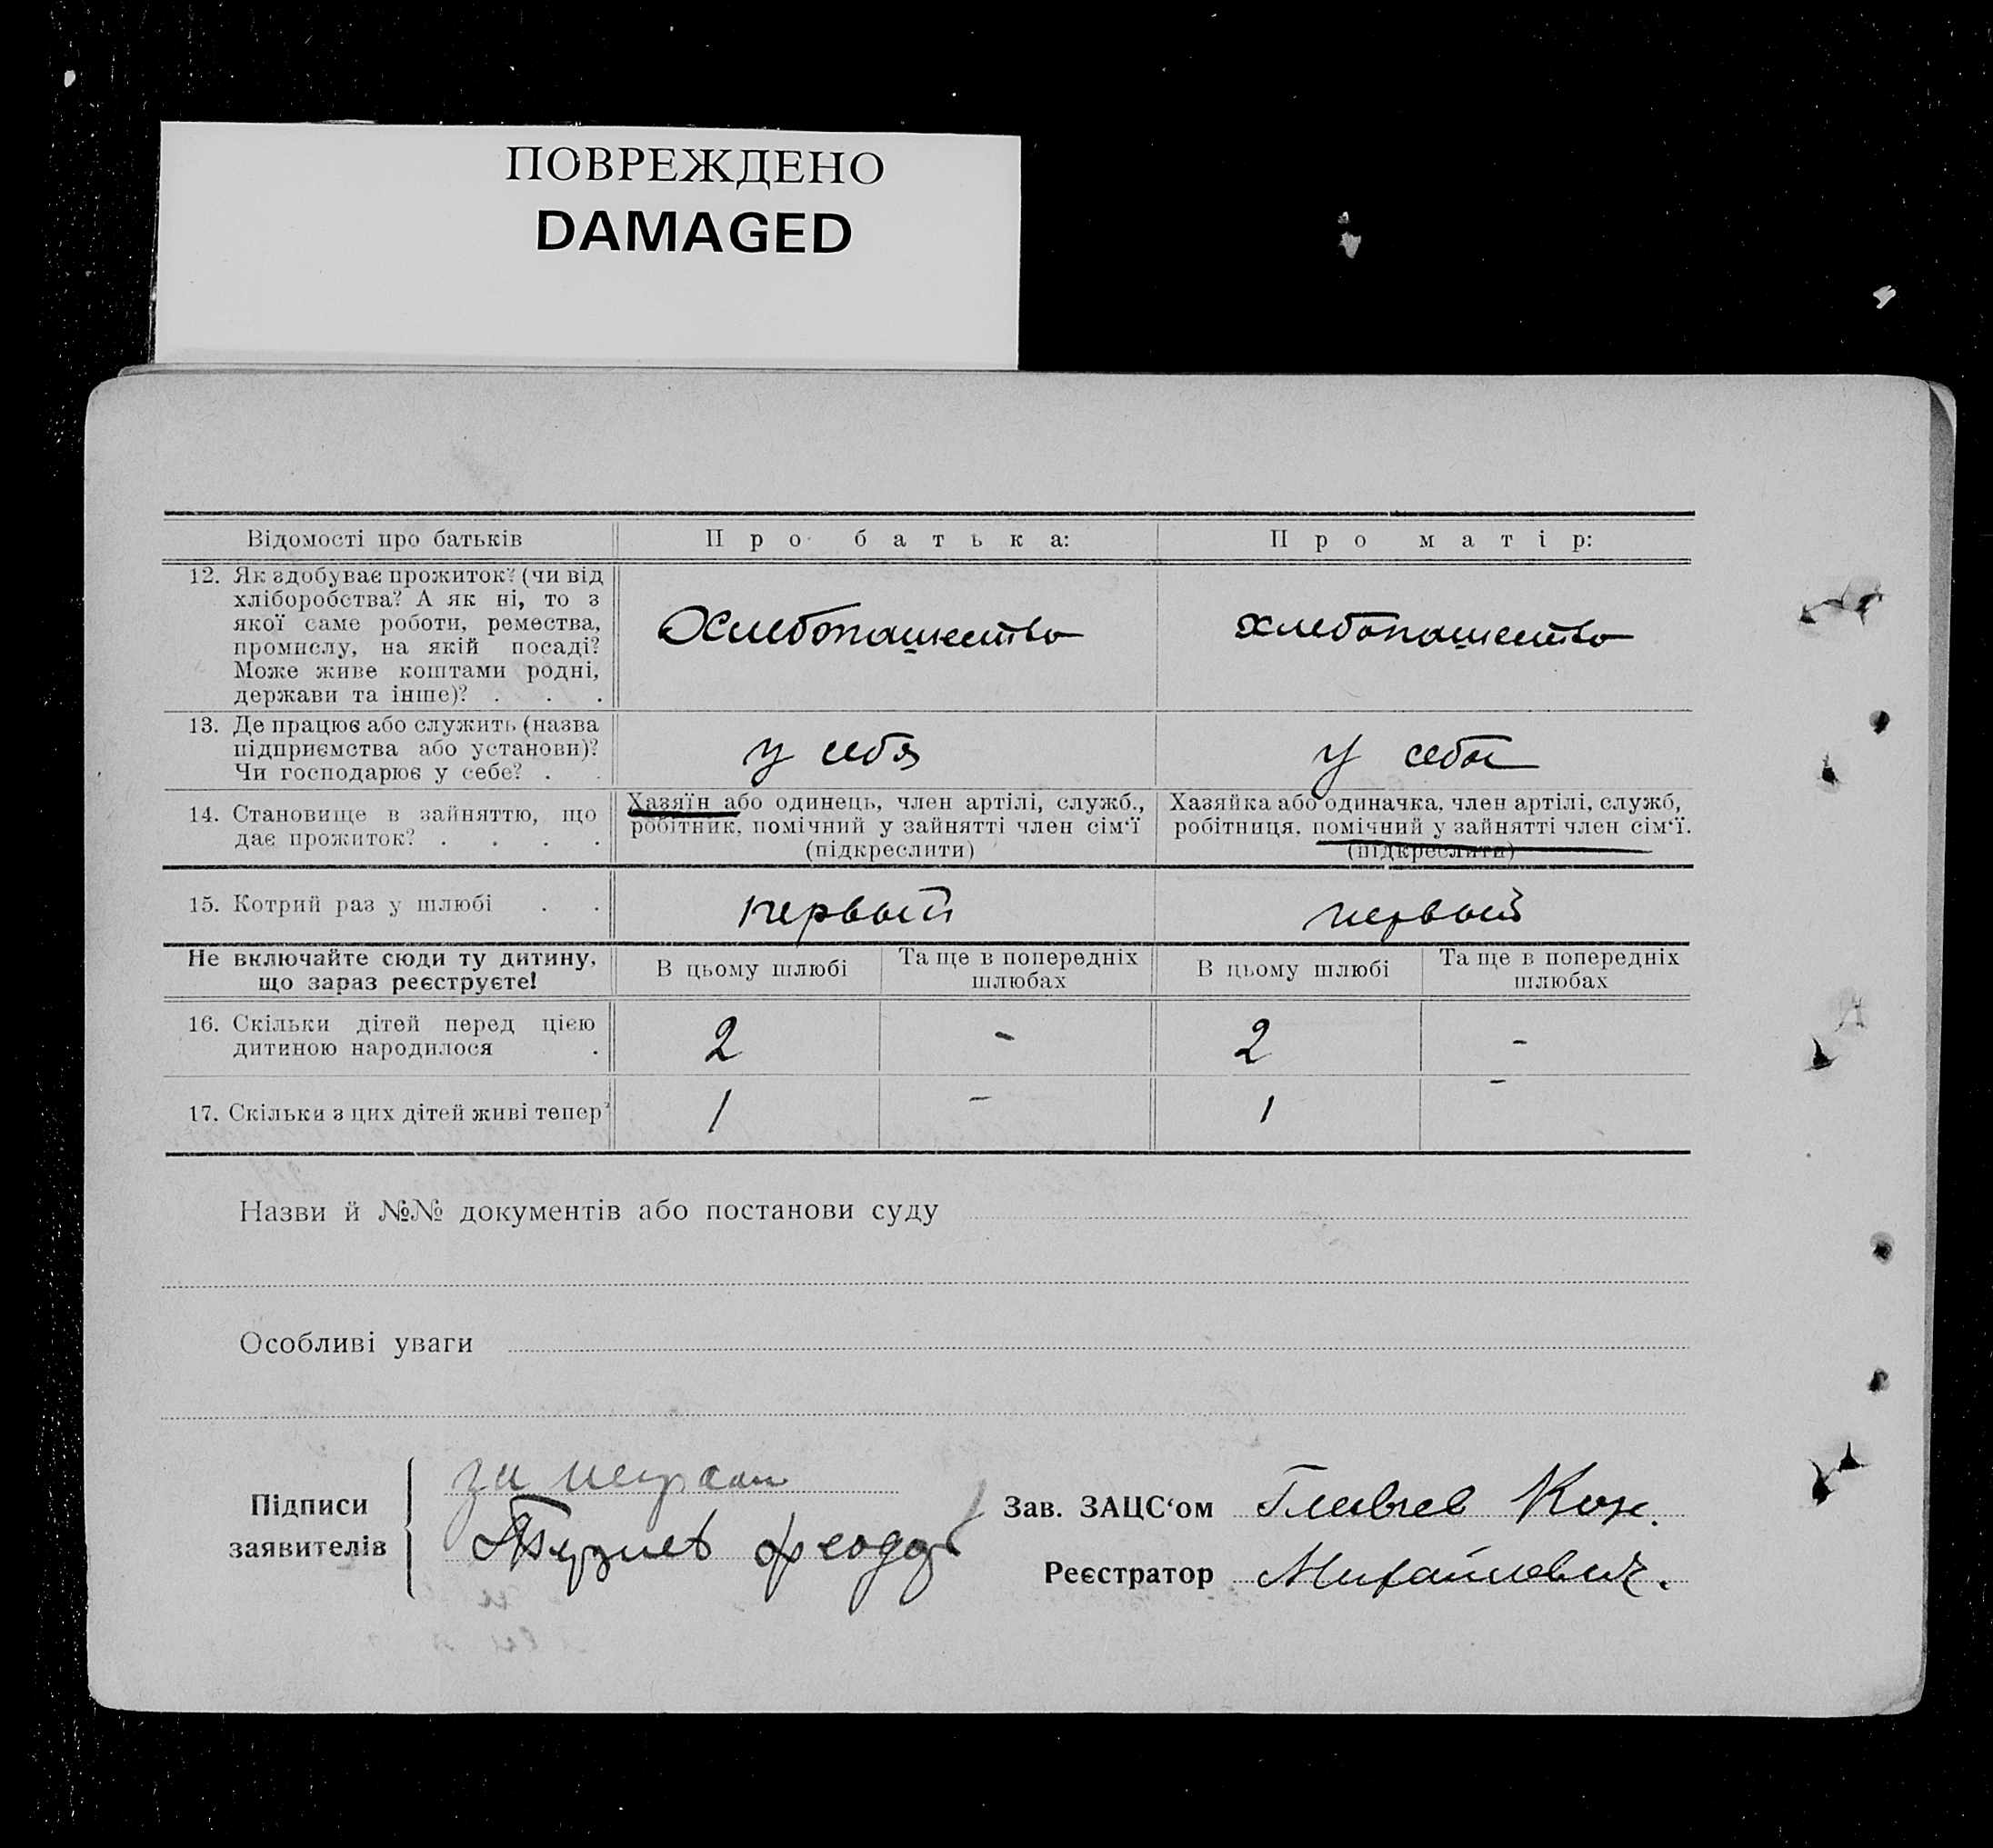 ПОВРЕЖДЕНО
DAMAGED
Відомості про батьків
Про батька:
Про матір:
12. Як здобуває прожиток? (чи від
хліборобства? А як ні, то з
якої саме роботи, ремества,
промислу, на якій посаді?
Може живе коштами родні,
держави та інше)? . . .
Хлебопашество
хлебопашество
13. Де працює або служить (назва
підприємства або установи)?
Чи господарює у себе? . .
у себя
у себя
14. Становище в зайняттю, що
дає прожиток? . . . .
Хазяїн або одинець, член артілі, служб.,
робітник, помічний у зайнятті член сім‘ї
(підкреслити)
Хазяйка або одиначка, член артілі, служб,
робітниця, помічний у зайнятті член сім‘ї.
(підкреслити)
15. Котрий раз у шлюбі . .
первый
первый
Не включайте сюди ту дитину,
що зараз реєструєте!
В цьому шлюбі
Та ще в попередніх
шлюбах
В цьому шлюбі
Та ще в попередніх
шлюбах
16. Скільки дітей перед цією
дитиною народилося .
2
-
2
-
17. Скільки з цих дітей живі тепер?
1
-
1
-
Назви й №№ документів або постанови суду
Особливі уваги
Підписи
заявителів
за
Зав. ЗАЦС‘ом
Реєстратор Михайлевич.